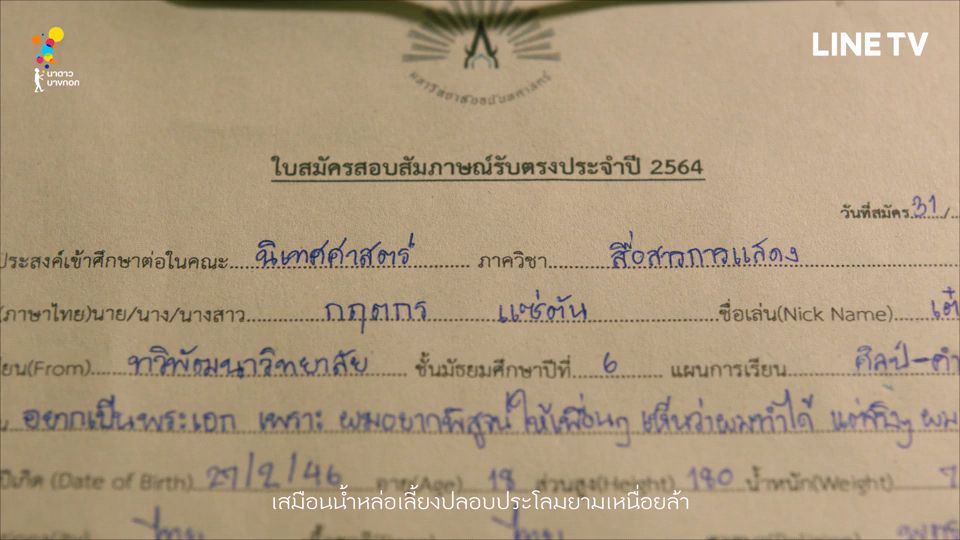 นาดาว
บางกอก
LINE TV
ใบสมัครสอบสัมภาษณ์รับตรงประจำปี 2564
วันที่สมัคร 31/
ประสงค์เข้าศึกษาต่อในคณะ นิเทศศาสตร์ ภาควิชา สื่อสารการแสดง
(ภาษาไทย)นาย/นาง/นางสาว กฤตกร แซ่ตัน ชื่อเล่น(Nick Name) เต๋
(From) ทวีพัฒนาวิทยาลัย ชั้นมัธยมศึกษาปีที่ 6 แผนการเรียน ศิลป์-คำ
อยากเป็นพระเอก เพราะ ผมอยากพิสูจน์ให้เพื่อนๆ เห็นว่าผมทำได้ แต่จริงๆ ผม
ปีเกิด (Date of Birth) 27/2/46 อายุ(Age) 18 ส่วนสูง(Height) 180 น้ำหนัก(Weight) 7
เสมือนน้ำหล่อเลี้ยงปลอบประโลมยามเหนื่อยล้า